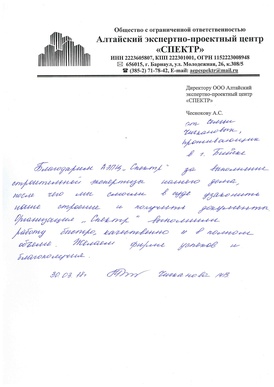 Общество с ограниченной ответственностью
Алтайский экспертно-проектный центр
«СПЕКТР»
ИНН 2223605807, КПП 222301001, ОГРН 1152223008948
656015, г. Барнаул, ул. Молодежная, 26, ком.308/5
(385-2) 71-78-42, E-mail: aepcspektr@mail.ru
Директору ООО Алтайский
экспертно-проектный центр
«СПЕКТР»
Чеснокову А.С.
от семьи
проживающих
в г. Бийске
Благодарим АЭПЦ „Спектр" за выполнение
строительной экспертизы нашего дома,
после чего мы смогли в суде узаконить
наше строение и получить документы.
Организация „Спектр" выполнила
работу быстро, качественно и в полном
объеме. Желаем фирме успехов и
благополучия.